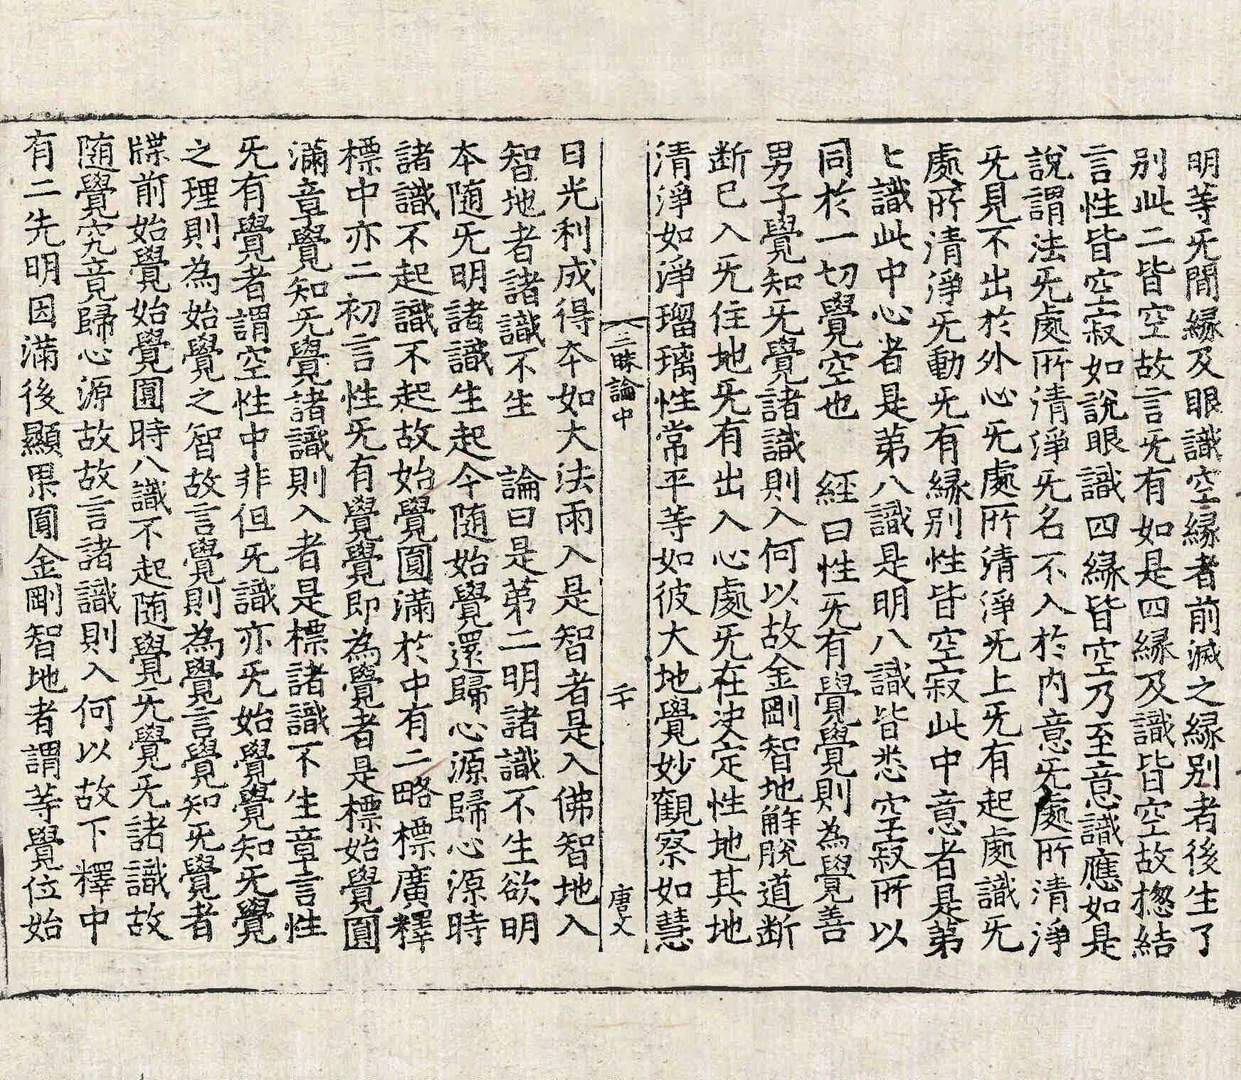 明等无間縁及眼識空縁者前滅之縁別者後生了
别此二皆空故言无有如是四縁及識皆空故揔結
言性皆空寂如說眼識四縁皆空乃至意識應如是
說謂法无處所清淨无名不入於内意无處所清淨
无見不出於外心无處所清淨无上无有起處識无
處所清淨无動无有縁别性皆空寂此中意者是苐
七識此中心者是苐八識是明八識皆悉空寂所以
同於一切覺空也 經曰性无有覺覺則為覺善
男子覺知无覺諸識則入何以故金剛智地解脫道断
断已入无住地无有出入心處无在决定性地其地
清淨如淨瑠璃性常平等如彼大地覺妙觀察如慧
三昧論中 二十 唐文
日光利成得夲如大法雨入是智者是入佛智地入
智地者諸識不生 論曰是苐二明諸識不生欲明
夲随无明諸識生起今随始覺還歸心源歸心源時
諸識不起識不起故始覺圓滿於中有二略標廣釋
標中亦二初言性无有覺覺即為覺者是標始覺圓
滿章覺知无覺諸識則入者是標諸識不生章言性
无有覺者謂空性中非但无識亦无始覺覺知无覺
之理則為始覺之智故言覺則為覺言覺知无覺者
牒前始覺始覺圓時八識不起随覺无覺无諸識故
随覺究竟歸心源故故言諸識則入何以故下釋中
有二先明因滿後顯果圓金剛智地者謂等覺位始